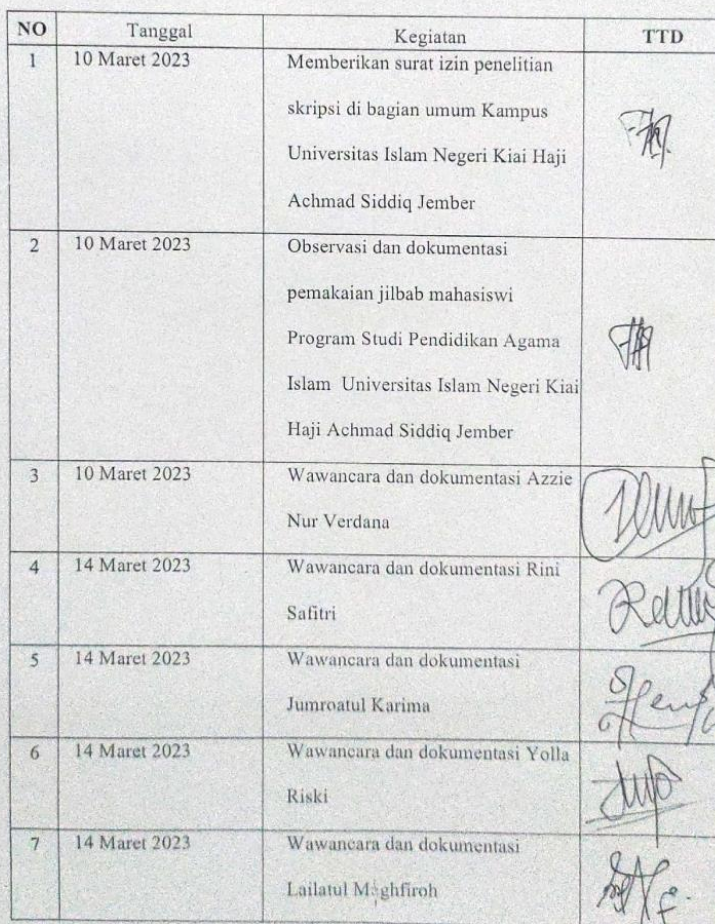 NO Tanggal Kegiatan TTD
1 10 Maret 2023 Memberikan surat izin penelitian
skripsi di bagian umum Kampus
Universitas Islam Negeri Kiai Haji
Achmad Siddiq Jember
2 10 Maret 2023 Observasi dan dokumentasi
pemakaian jilbab mahasiswi
Program Studi Pendidikan Agama
Islam Universitas Islam Negeri Kiai
Haji Achmad Siddiq Jember
3 10 Maret 2023 Wawancara dan dokumentasi Azzie
Nur Verdana
4 14 Maret 2023 Wawancara dan dokumentasi Rini
Safitri
5 14 Maret 2023 Wawancara dan dokumentasi
Jumroatul Karima
6 14 Maret 2023 Wawancara dan dokumentasi Yolla
Riski
7 14 Maret 2023 Wawancara dan dokumentasi
Lailatul Maghfiroh